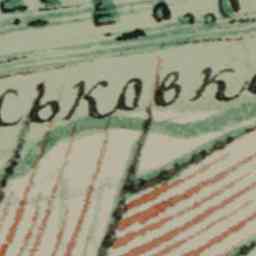 ськовка